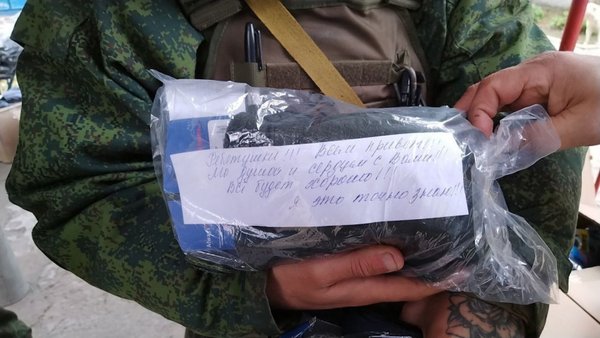 Ребятушки!!! Всем привет!!!
Мы душою и сердцем с Вами!!!
Все будет хорошо!!!!
Я это точно знаю!!